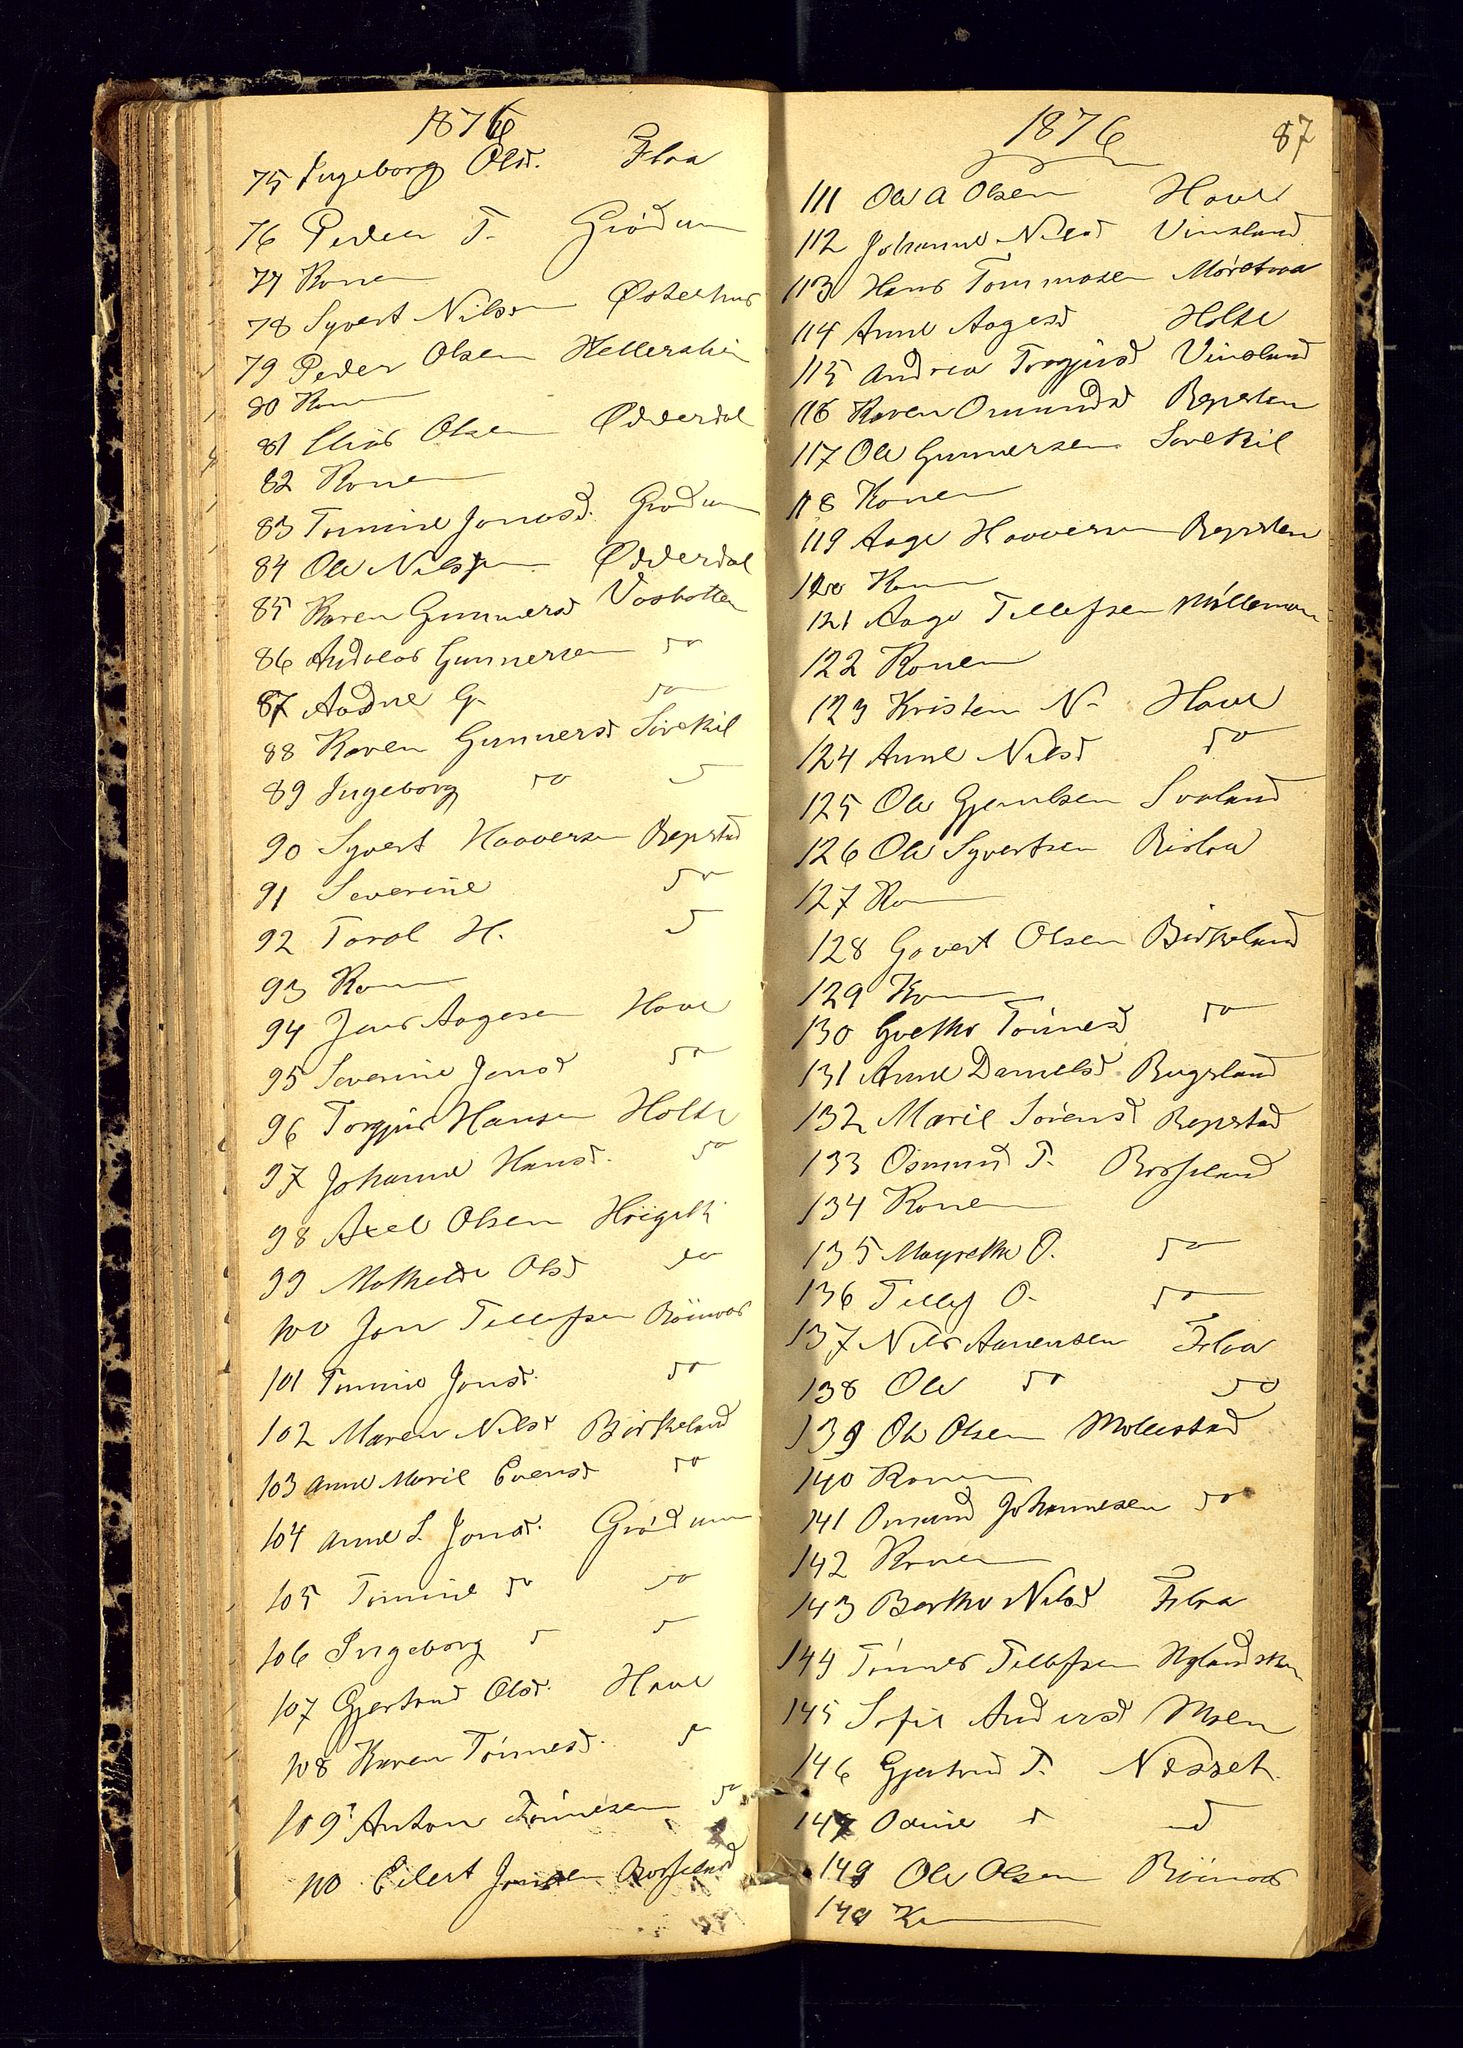 1876
75 Ingeborg Olsd. Flaa
76 Peder T. Grödum
77 Konen
78 Syvert Nilsen Østerhus
79 Peder Olsen Hellershei
80 Konen
81 Elias Olsen Ødderdal
82 Konen
83 Tomine Jonasd. Grödum
84 Ole Nilsen Ødderdal
85 Karen Gunnersd Vasbotten
86 Andreas Gunnersen do
87 Aadne G. do
88 Karen Gunnersd Sövekil
89 Ingeborg do d
90 Syvert Haaversen Repstad
91 Severine do
92 Torol H. d
93 Konen
94 Jens Aagesen Have
95 Severine Jensd do
96 Torgjus Hansen Holte
97 Johanne Hansd. do
98 Axel Olsen
99 Mathilde Olsd do
100 Jon Tellefsen Röinaas
101 Tomine Jonsd. do
102 Maren Nilsd Birkeland
103 Anne Marie Evensd do
104 Anne S. Jonsd. Grödum
105 Tomine do do
106 Ingeborg d d
107 Gjertrud Olsd. Have
108 Karen Tönnesd. d
109 Anton Tönnesen do
110 Eilert Jonsen Rosseland
1876 87
111 Ole A Olsen Have
112 Johanne Nilsd Vinsland
113 Hans Tommasen
114 Anne Aagesd Holte
115 Andrea Torgjusd Vinsland
116 Karen Omundsd Repsten
117 Ole Gunnersen Sövekil
118 Konen
119 Aage Haaversen Repsten
120 Konen
121 Aage Tellefsen
122 Konen
123 Kristen N. Have
124 Anne Nilsd do
125 Ole Gjerulsen Svaland
126 Ole Syvertsen Rislaa
127 Konen
128 Govert Olsen Birkeland
129 Konen
130 Grethe Tönnesd do
131 Anne Danielsd Rugsland
132 Marie Sörensd Repstad
133 Osmund T. Rosseland
134 Konen
135 Magrethe O. do
136 Tellef O. do
137 Nils Aanensen Flaa
138 Ole do do
139 Ole Olsen Mollestad
140 Konen
141 Omund Johannesen do
142 Konen
143 Berthe Nilsd Flaa
144 Tönnes Tellefsen
145 Sofie Andersd Moen
146 Gjertrud T. Nesset.
147 Odine d d
149 Ole Olsen Röinaas
149 Konen